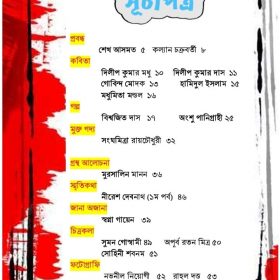 সূচীপত্র
প্রবন্ধ
শেখ আসমত ৫ কল্যান চক্রবর্তী ৮
কবিতা
দিলীপ কুমার মধু ১০ দিলীপ কুমার দাস ১১
গোবিন্দ মোদক ১৩ হামিদুল ইসলাম ১৫
মধুমিতা মন্ডল ১৬
গল্প
বিশ্বজিত দাস ১৭ অংশু পানিগ্রাহী ২৫
মুক্ত গদ্য
সংঘমিত্রা রায়চৌধুরী ৩২
গ্রন্থ আলোচনা
মুরসালিন মানন ৩৬
স্মৃতিকথা
নীরেশ দেবনাথ (১ম পর্ব) ৪৬
জানা অজানা
স্বপ্না গায়েন ৩৯
চিত্রকলা
সুমন গোস্বামী ৪৯ অপূর্ব রতন মিত্র ৫০
সোহিনী শবনম ৫১
ফটোগ্রাফি
নভনীল নিয়োগী ৫২ রাহুল দত্ত ৫৩